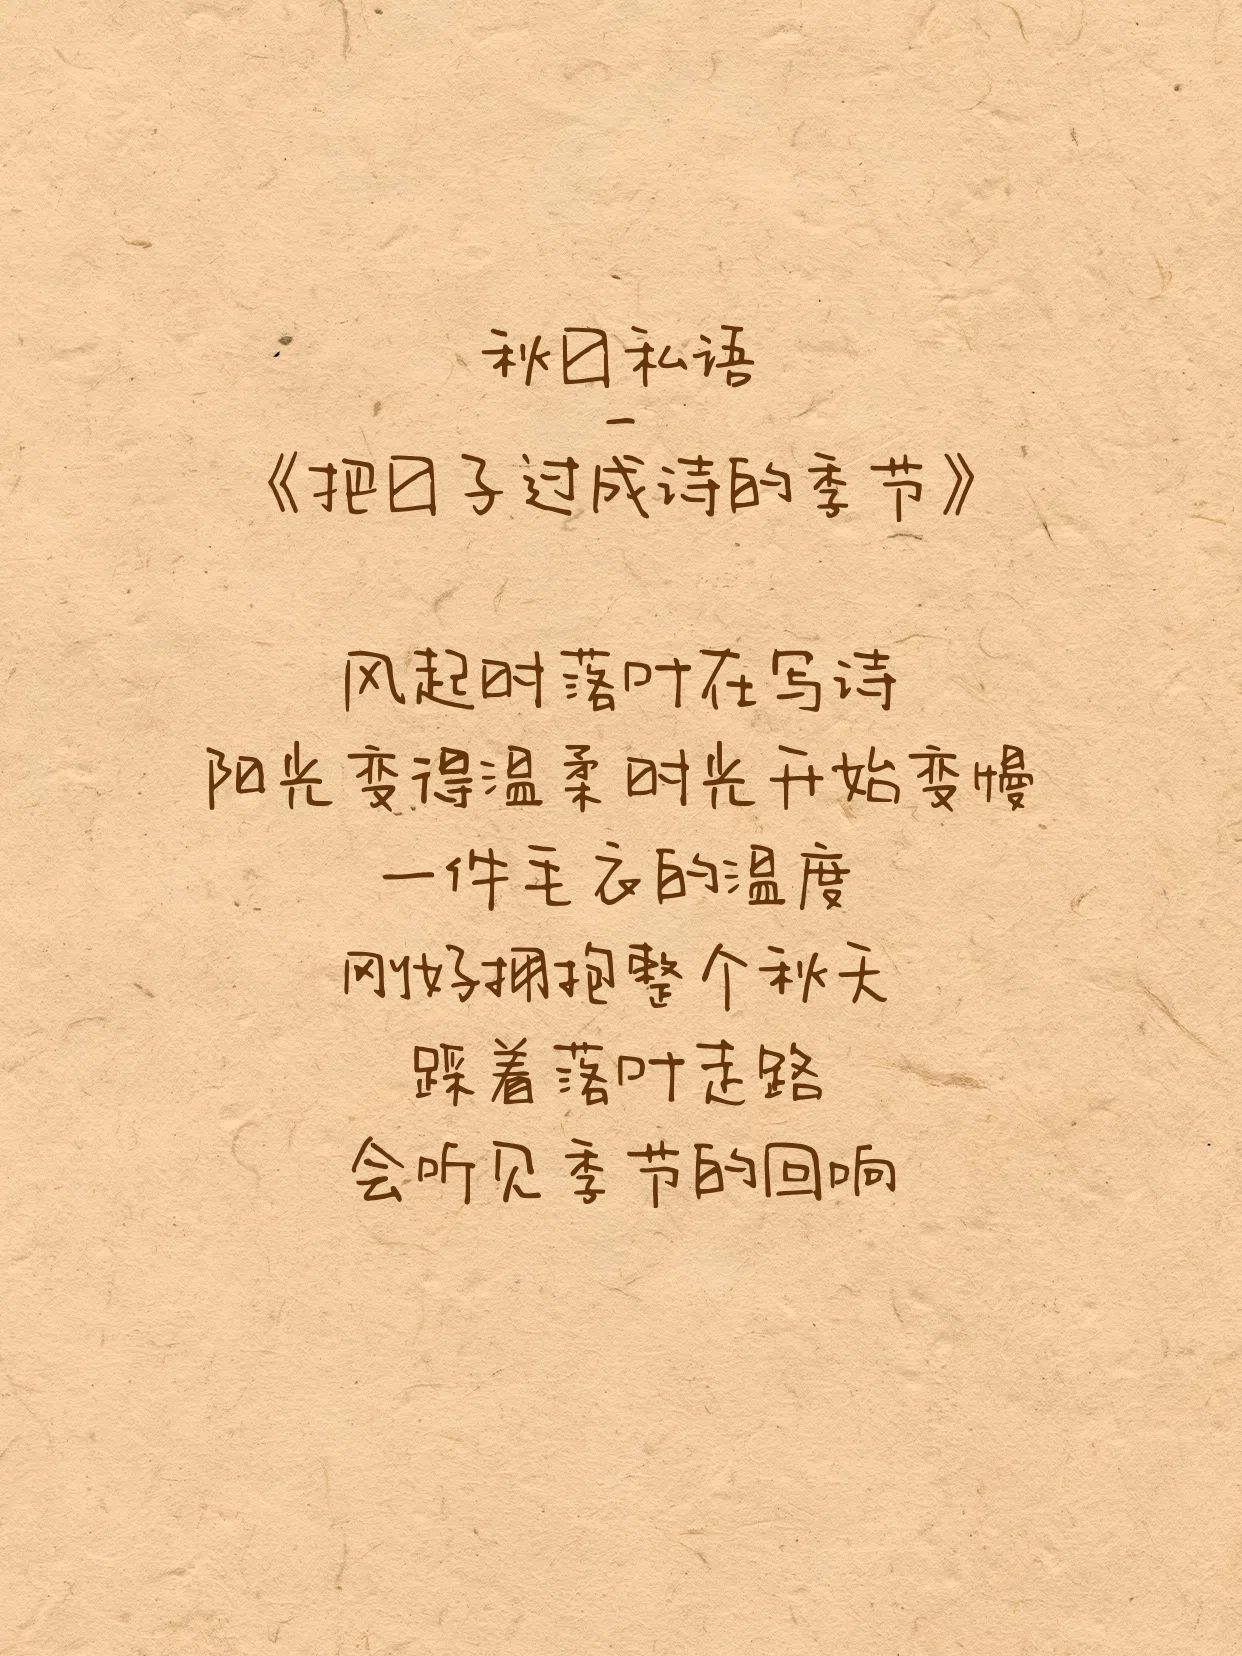 秋日私语
一
《把日子过成诗的季节》
风起时落叶在写诗
阳光变得温柔时光开始变慢
一件毛衣的温度
刚好拥抱整个秋天
踩着落叶走路
会听见季节的回响